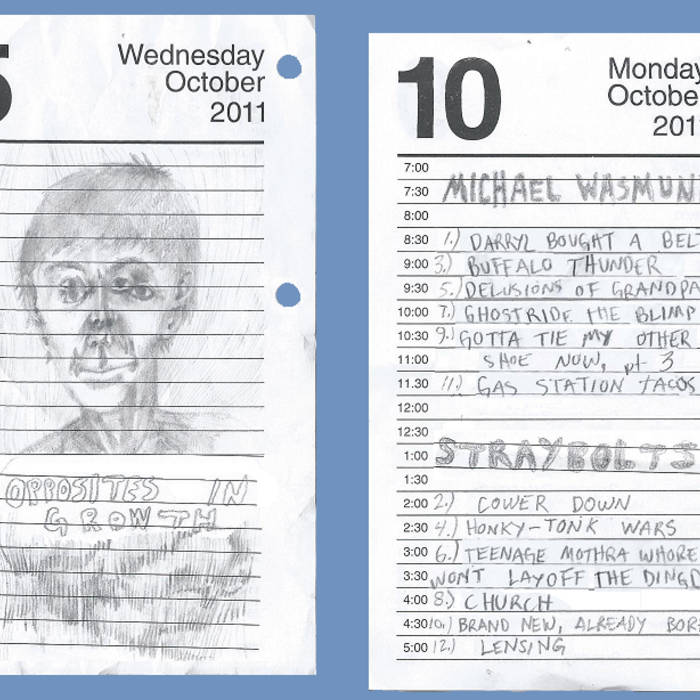 5
Wednesday
October
2011
OPPOSITES IN
GROWTH
10
Monday
Octobe
201
7:00
7:30 MICHAEL WASMUN
8:00
8:30 1.) DARRYL BOUGHT A BELT
9:00 3.) BUFFALO THUNDER
9:30 5.) DELUSIONS OF GRANDPA
10:00 7.) GHOSTRIDE THE BLIMP
10:30 9.) GOTTA TIE MY OTHER
11:00 SHOE NOW, pt 3
11.30 11.) GAS STATION TACOS
12:00
12:30
1:00 STRAYBOLTS
1:30
2:00 2.) COWER DOWN
2:30 4.) HONKY-TONK WARS
3:00 6.) TEENAGE MOTHRA WHORE
3:30 WON'T LAYOFF THE DINGD
4:00 8.) CHURCH
4:30 10.) BRAND NEW, ALREADY BOR
5:00 12.) LENSING